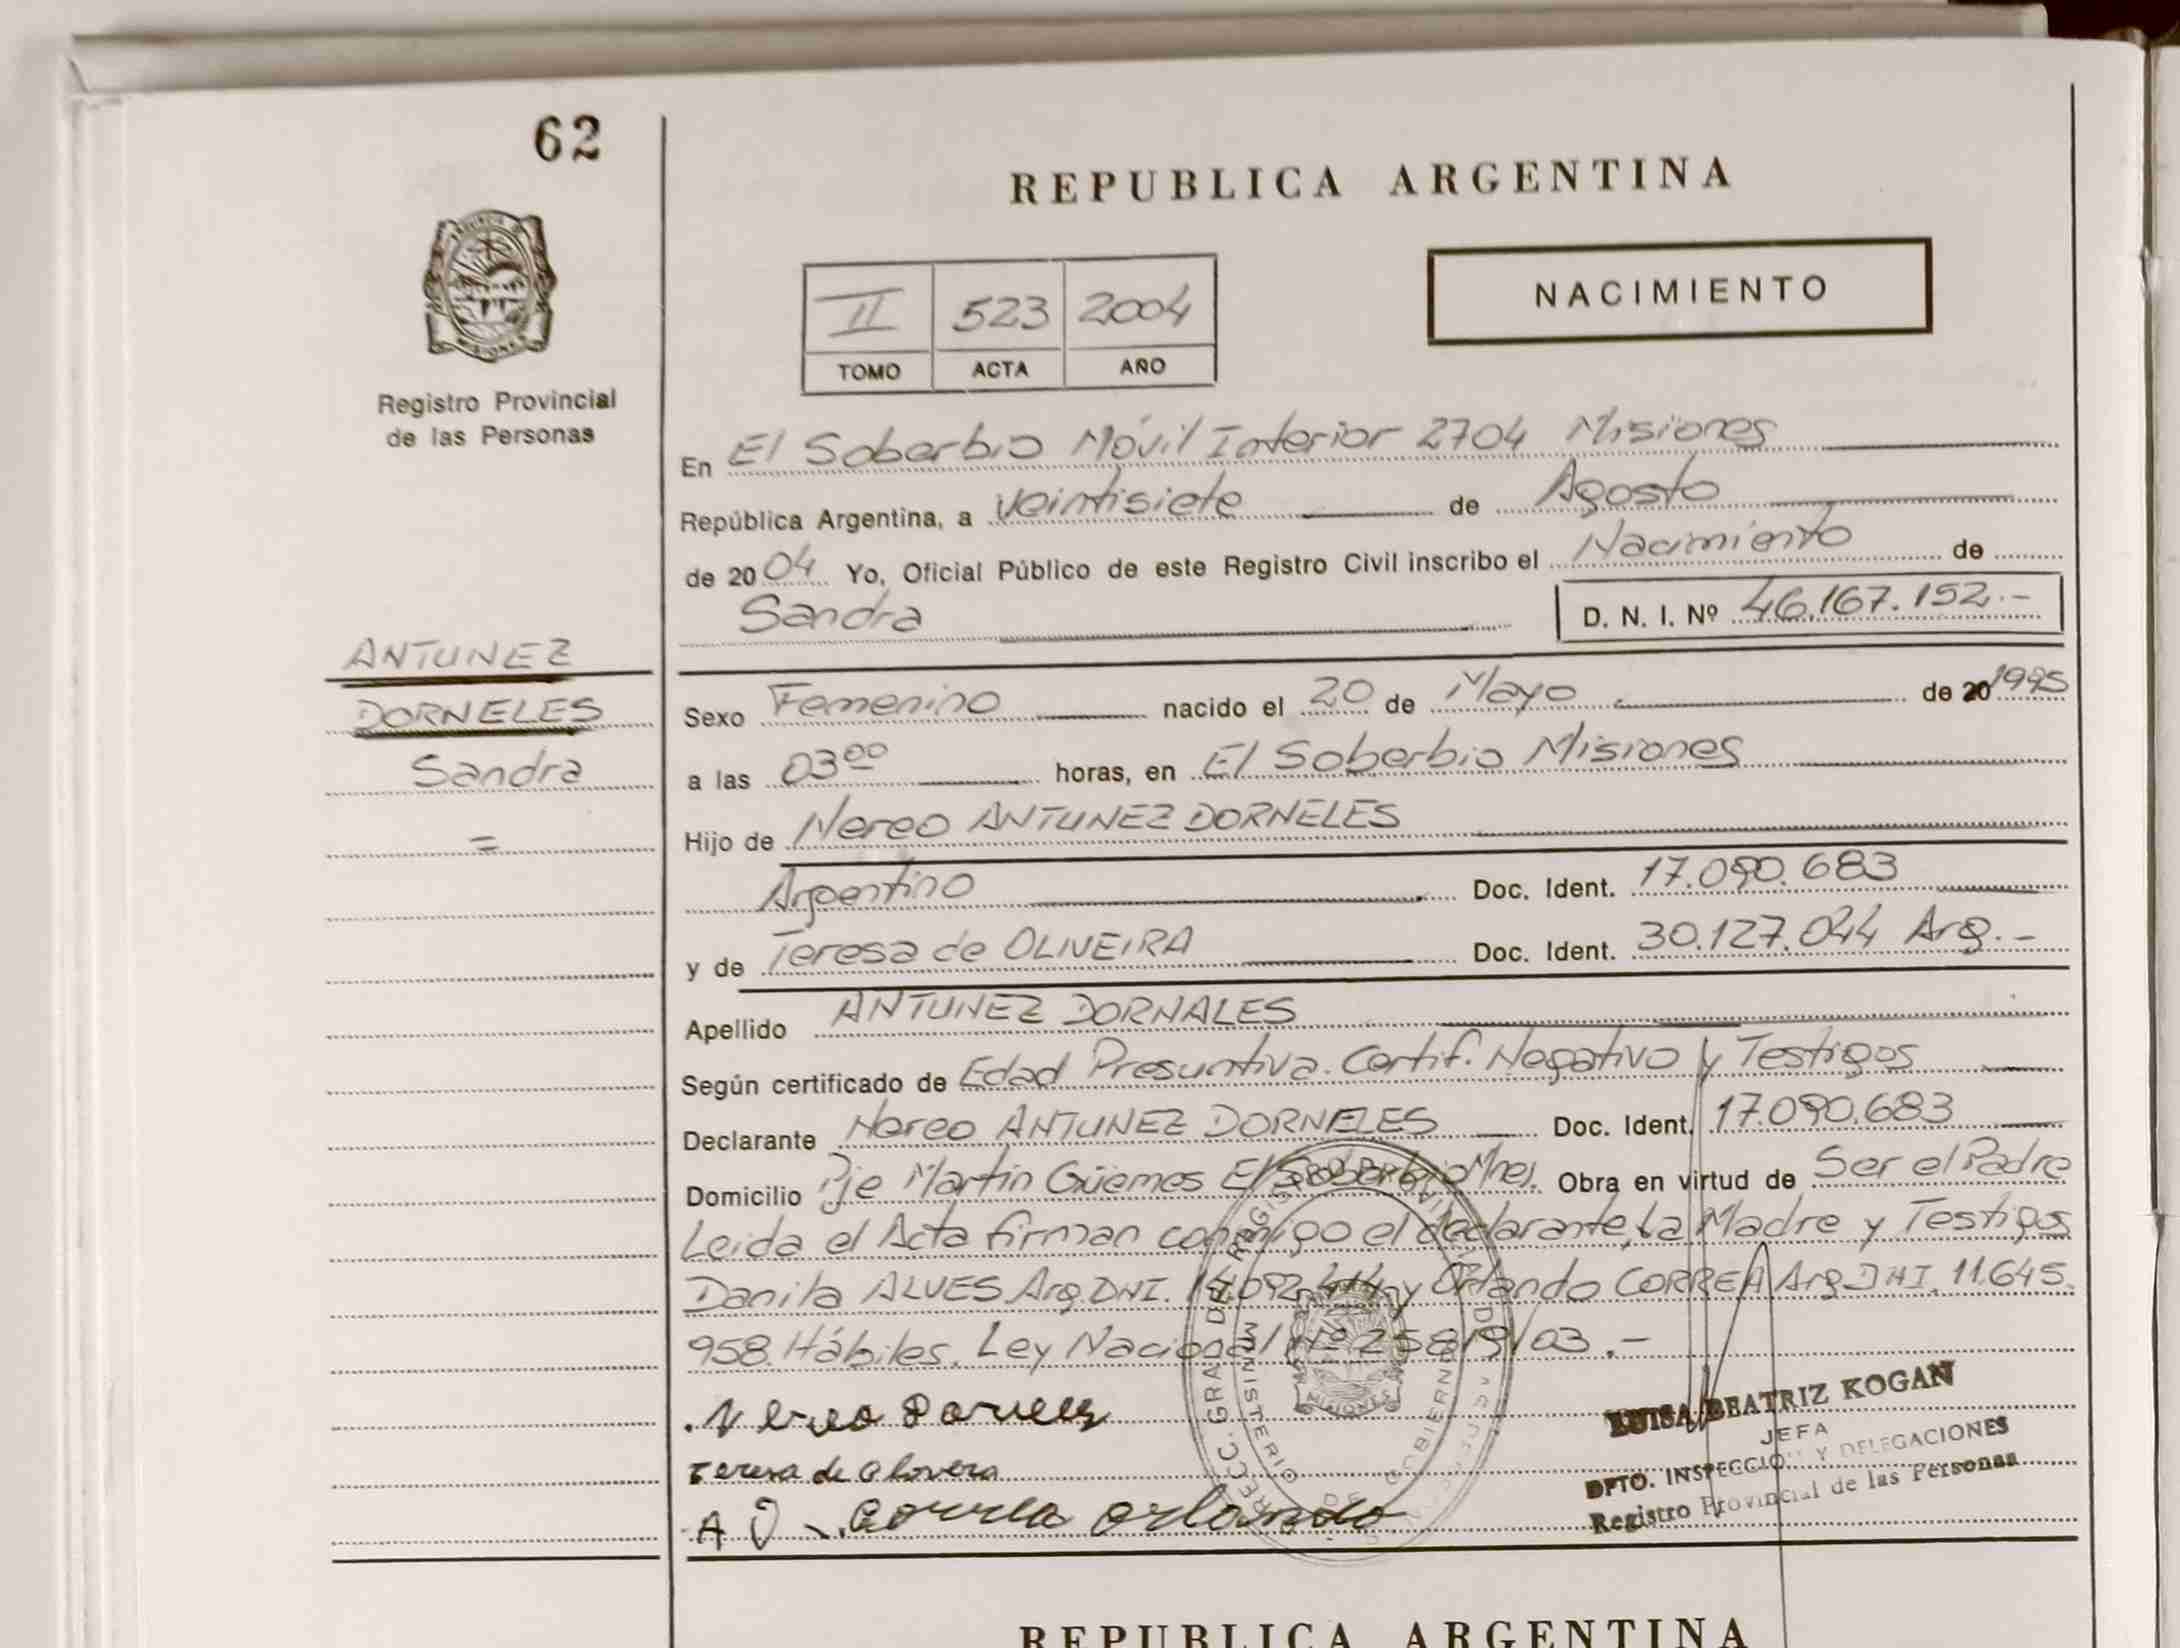 62
REPUBLICA ARGENTINA
NACIMIENTO
II 523 2004
TOMO ACTA AÑO
MISIONES
Registro Provincial
de las Personas
En El Soberbio Móvil Interior 2704 Misiones
República Argentina, a veintisiete de Agosto
de 2004 Yo, Oficial Público de este Registro Civil inscribo el Nacimiento de
Sandra D. N. I. Nº 46.167.152.-
ANTUNEZ
DORNELES
Sandra
=
Sexo Femenino nacido el 20 de Mayo de 20 1995
a las 03⁰⁰ horas, en El Soberbio Misiones
Hijo de Nereo ANTUNEZ DORNELES
Argentino Doc. Ident. 17.090.683
y de Teresa de OLIVEIRA Doc. Ident. 30.127.044 Arg.-
Apellido ANTUNEZ DORNALES
Según certificado de Edad Presuntiva. Certif. Negativo y Testigos
Declarante Nereo ANTUNEZ DORNELES Doc. Ident. 17.090.683
Domicilio Pje Martín Güemes El Soberbio Mnes. Obra en virtud de Ser el Padre
Leida el Acta firman conmigo el declarante, La Madre y Testigos
Danila ALVES Arg. DNI. y Orlando CORREA Arg DNI. 11.645.
958. Hábiles. Ley Nacional Nº 25819/03.-
Nereo
Teresa de
A Correa Orlando
MINISTERIO DE GOBIERNO
MISIONES
LUISA BEATRIZ KOGAN
JEFA
DPTO. INSPECCION Y DELEGACIONES
Registro Provincial de las Personas
REPUBLICA ARGENTINA